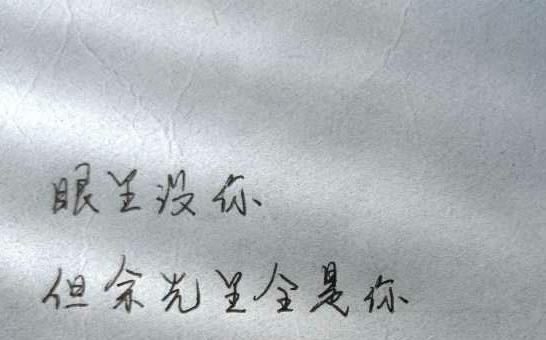 眼里没你
但余光里全是你